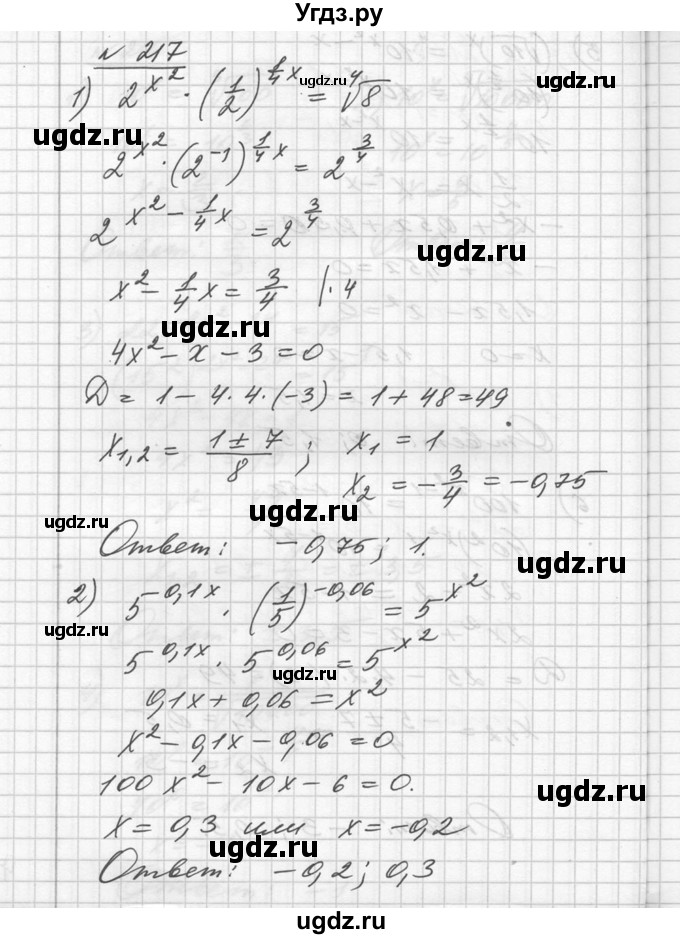 Угдз.ру
№ 217
1) 2^{x^2} · (1/2)^{1/4 x} = ⁴√8
2^{x^2} · (2^{-1})^{1/4 x} = 2^{3/4}
2^{x^2 - 1/4 x} = 2^{3/4}
x^2 - 1/4 x = 3/4 |· 4
4x^2 - x - 3 = 0
D = 1 - 4·4·(-3) = 1 + 48 = 49
x_{1,2} = (1 ± 7)/8 ; x_1 = 1
x_2 = -3/4 = -0,75
Ответ: -0,75; 1.
2) 5^{0,1x} · (1/5)^{-0,06} = 5^{x^2}
5^{0,1x} · 5^{0,06} = 5^{x^2}
0,1x + 0,06 = x^2
x^2 - 0,1x - 0,06 = 0
100x^2 - 10x - 6 = 0.
x = 0,3 или x = -0,2
Ответ: -0,2; 0,3
ugdz.ru
ugdz.ru
ugdz.ru
ugdz.ru
ugdz.ru
ugdz.ru
ugdz.ru
ugdz.ru
ugdz.ru
ugdz.ru
ugdz.ru
ugdz.ru